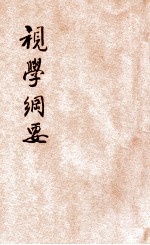 視學綱要